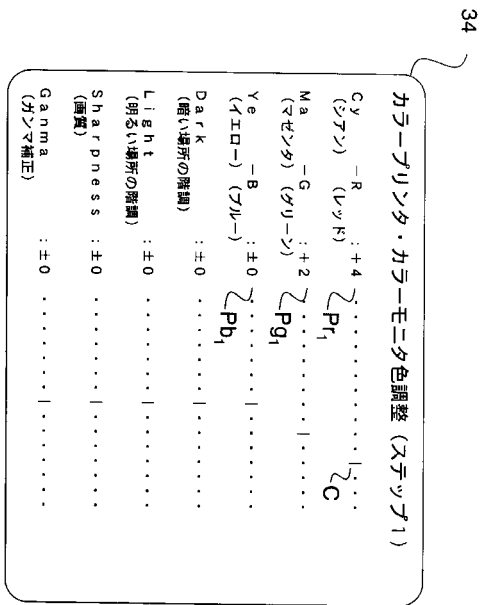 34
カラープリンタ・カラーモニタ色調整（ステップ1）
Cy －R ：+4 ．．．．．．．．．．．|．．．
（シアン）（レッド） Pr1 C
Ma －G ：+2 ．．．．．．．．．|．．．．．
（マゼンタ）（グリーン） Pg1
Ye －B ：±0 ．．．．．．．|．．．．．．．
（イエロー）（ブルー） Pb1
Dark ：±0 ．．．．．．．|．．．．．．．
（暗い場所の階調）
Light ：±0 ．．．．．．．|．．．．．．．
（明るい場所の階調）
Sharpness ：±0 ．．．．．．．|．．．．．．．
（画質）
Ganma ：±0 ．．．．．．．|．．．．．．．
（ガンマ補正）